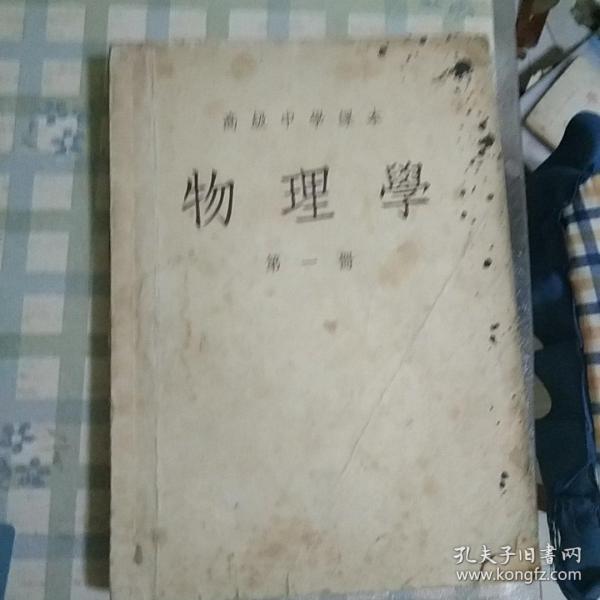 高級中學課本
物理學
第一冊
孔夫子旧書网
www.kongfz.com